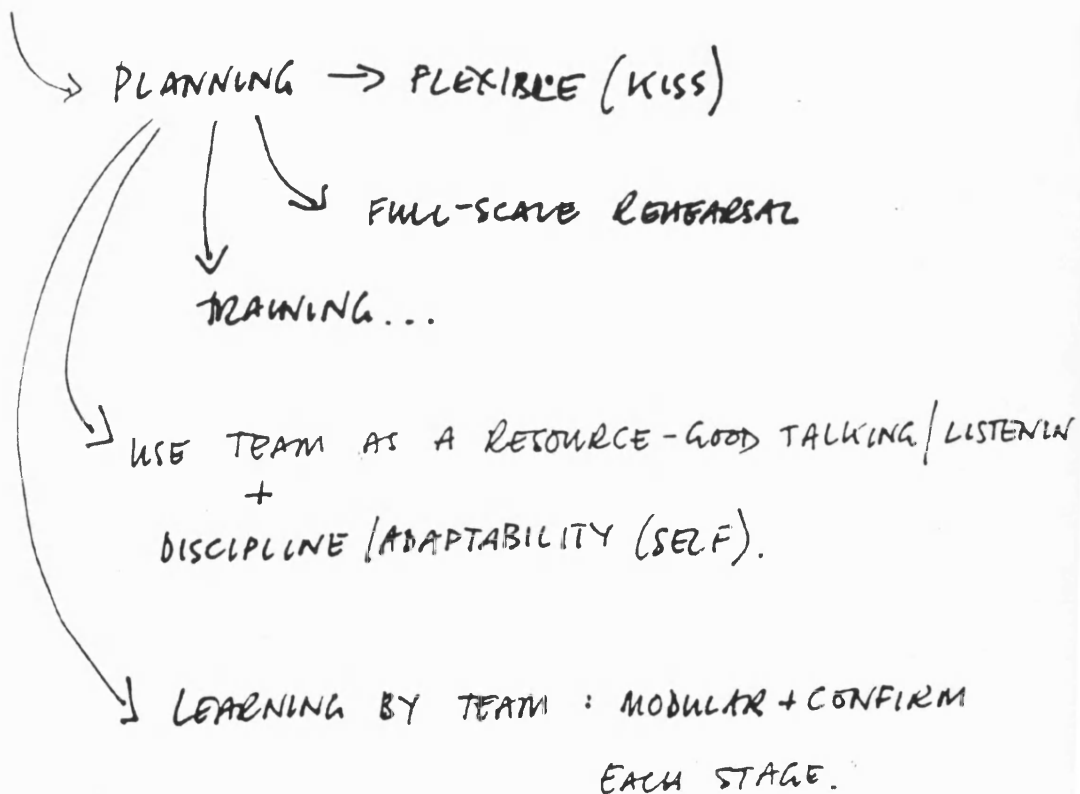 PLANNING → FLEXIBLE (KISS)
FULL-SCALE REHEARSAL
TRAINING...
USE TEAM AS A RESOURCE - GOOD TALKING / LISTENIN
+
DISCIPLINE / ADAPTABILITY (SELF).
LEARNING BY TEAM : MODULAR + CONFIRM
EACH STAGE.